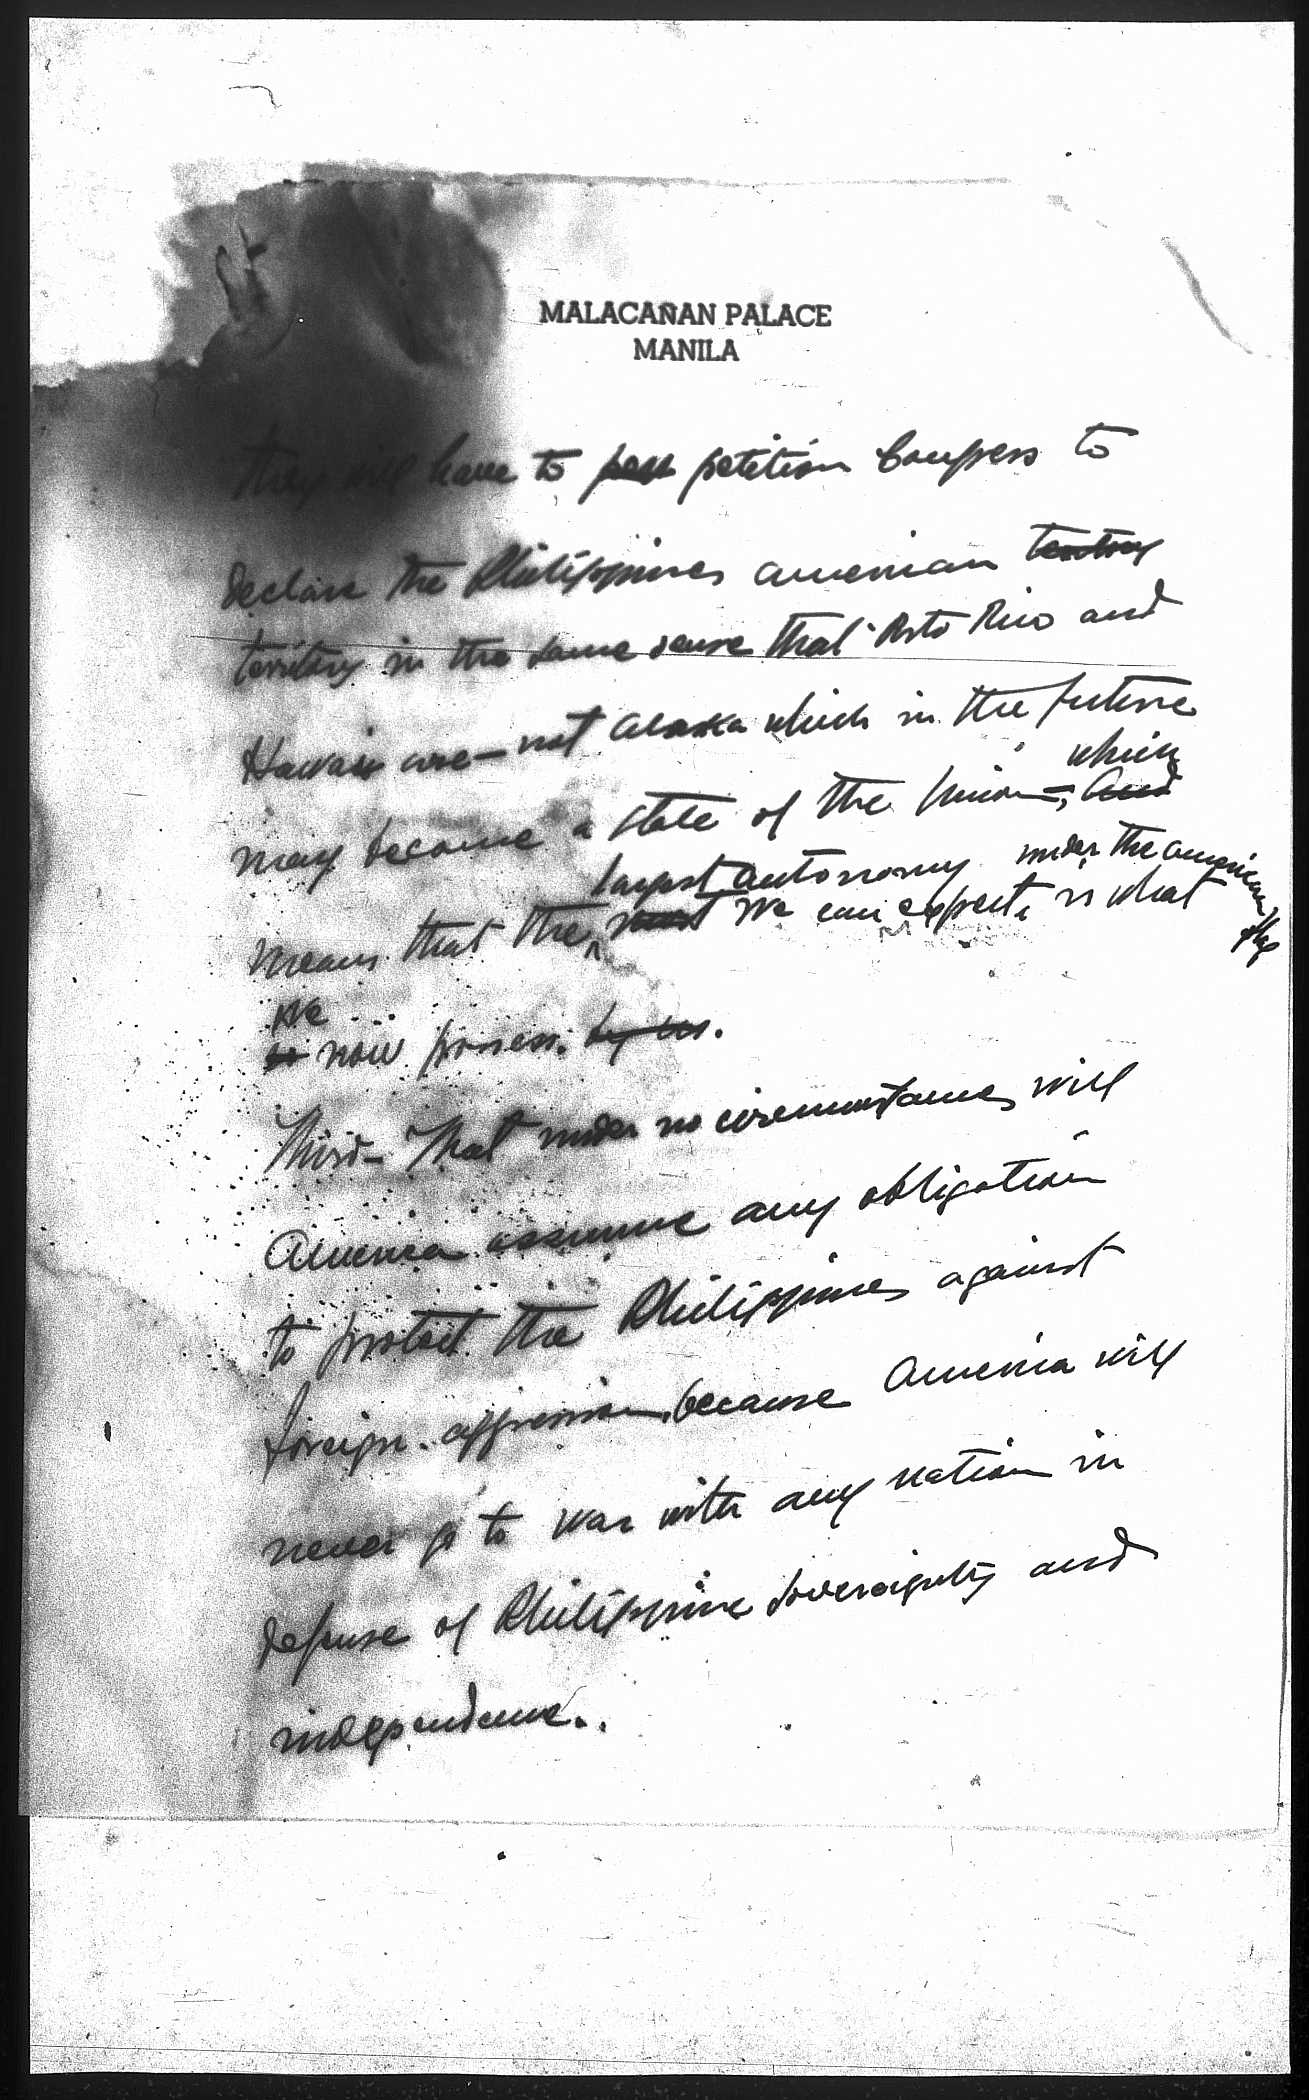 MALACAÑAN PALACE
MANILA
they will have to petition Congress to
declare the Philippines American tertory
territory in the same sense that Porto Rico and
Hawaii are – not Alaska which in the future
which
may become a state of the Union –, and
largest autonomy under the American flag
means that the most we can expect, is what
we
now possess. by us.
Third – That under no circumstances will
America assume any obligation
to protect the Philippines against
foreign aggression, because America will
never go to war with any nation in
defense of Philippine sovereignty and
independence.